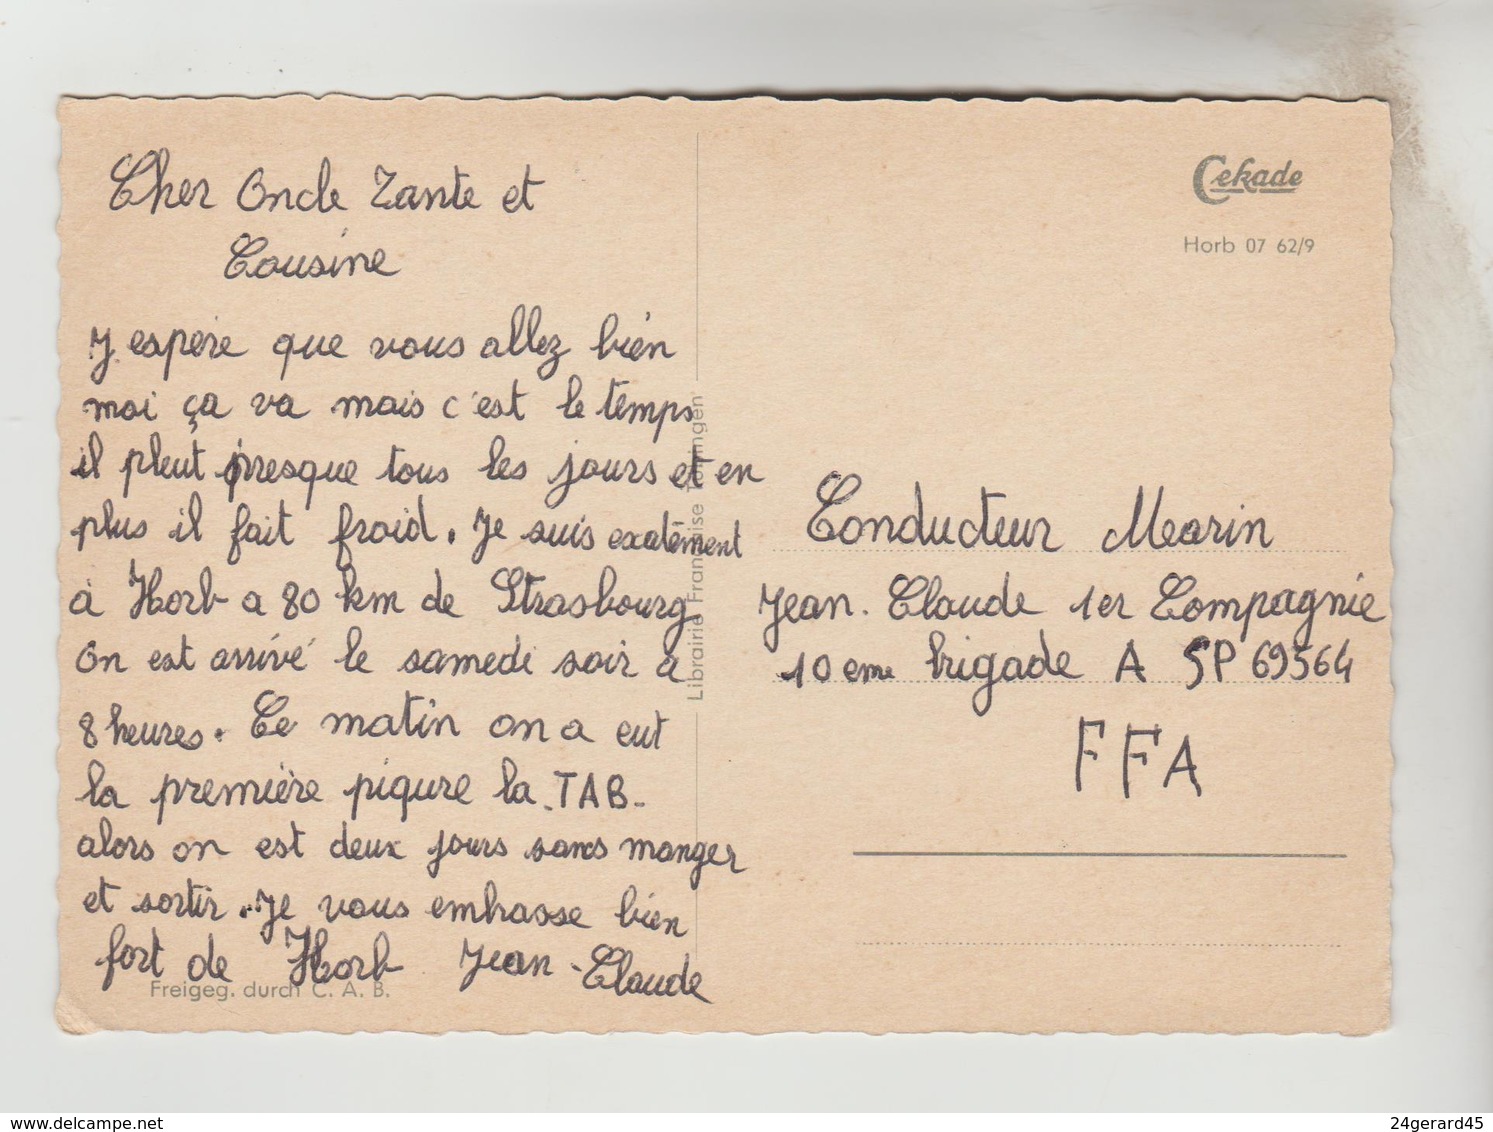 Cher Oncle Tante et
Cousine
J espere que vous allez bien
moi ça va mais c'est le temps
il pleut presque tous les jours et en
plus il fait froid. Je suis exatement
a Horb a 80 km de Strasbourg
On est arrivé le samedi soir a
8 heures. Ce matin on a eut
la première piqure la TAB-
alors on est deux jours sans manger
et sortir. Je vous embrasse bien
fort de Horb Jean-Claude
Freigeg. durch C. A. B.
Librairie Française Tübingen
Cekade
Horb 07 62/9
Conducteur Marin
Jean-Claude 1er Compagnie
10 eme brigade A SP 69564
FFA
www.delcampe.net
24gerard45